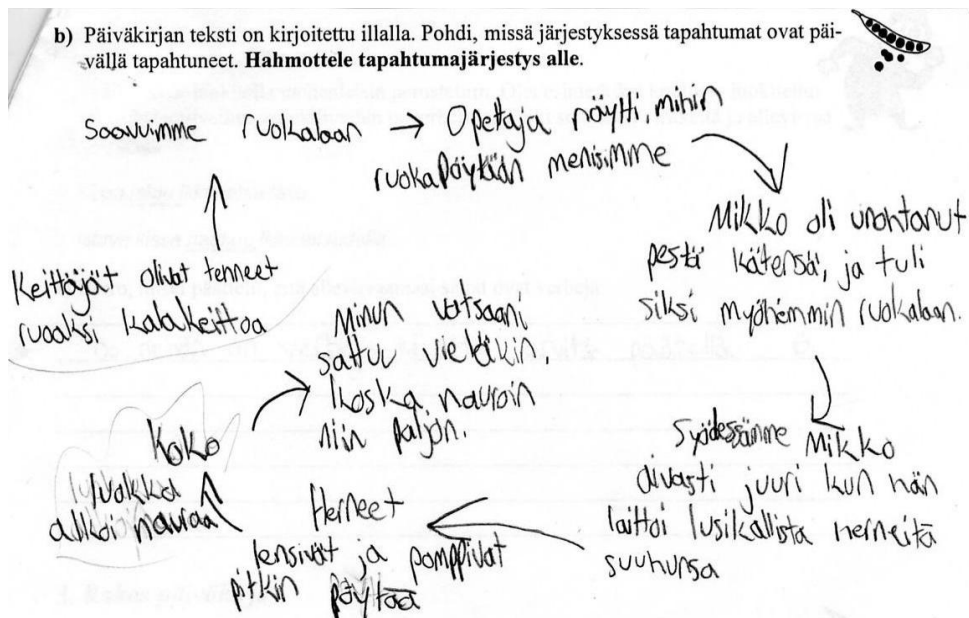 b) Päiväkirjan teksti on kirjoitettu illalla. Pohdi, missä järjestyksessä tapahtumat ovat päi-
vällä tapahtuneet. Hahmottele tapahtumajärjestys alle.
Keittäjät olivat tenneet
ruoaksi kalakeittoa
Saavuimme ruokalaan → Opettaja näytti mihin
ruokapöytään menisimme
Mikko oli unohtanut
pestä kätensä, ja tuli
siksi myöhemmin ruokalaan.
Syödessämme Mikko
aivasti juuri kun hän
laittoi lusikallista herneitä
suuhunsa
Herneet
lensivät ja pomppivat
pitkin pöytää
Koko
luokka
alkoi nauraa
Minun vatsaani
sattuu vieläkin,
koska nauroin
niin paljon.